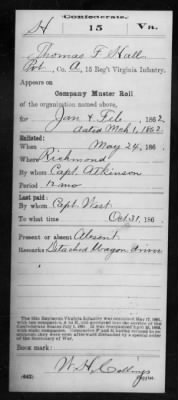 Confederate.
H 15 Va.
Thomas F Hall
Pvt, Co. A, 15 Reg't Virginia Infantry.
Appears on
Company Muster Roll
of the organization named above,
for Jan & Feb, 1862
dated Mch 1, 1862
Enlisted:
When May 24, 186
Where Richmond
By whom Capt. Atkinson
Period 12 mo
Last paid:
By whom Capt. West
To what time Oct 31, 186
Present or absent Absent
Remarks: Detached Wagon
Book mark:
(642) Copyist.